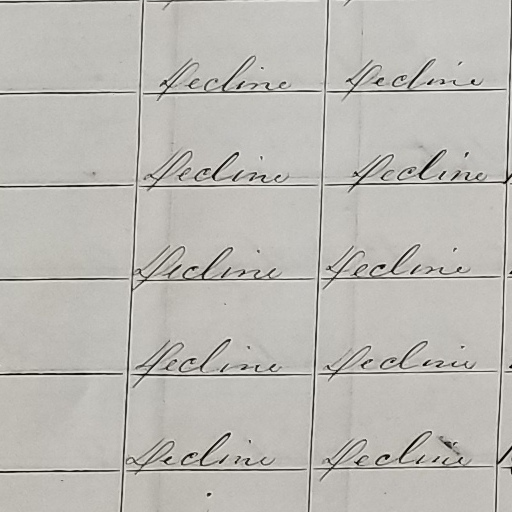 Decline Decline
Decline Decline
Decline Decline
Decline Decline
Decline Decline